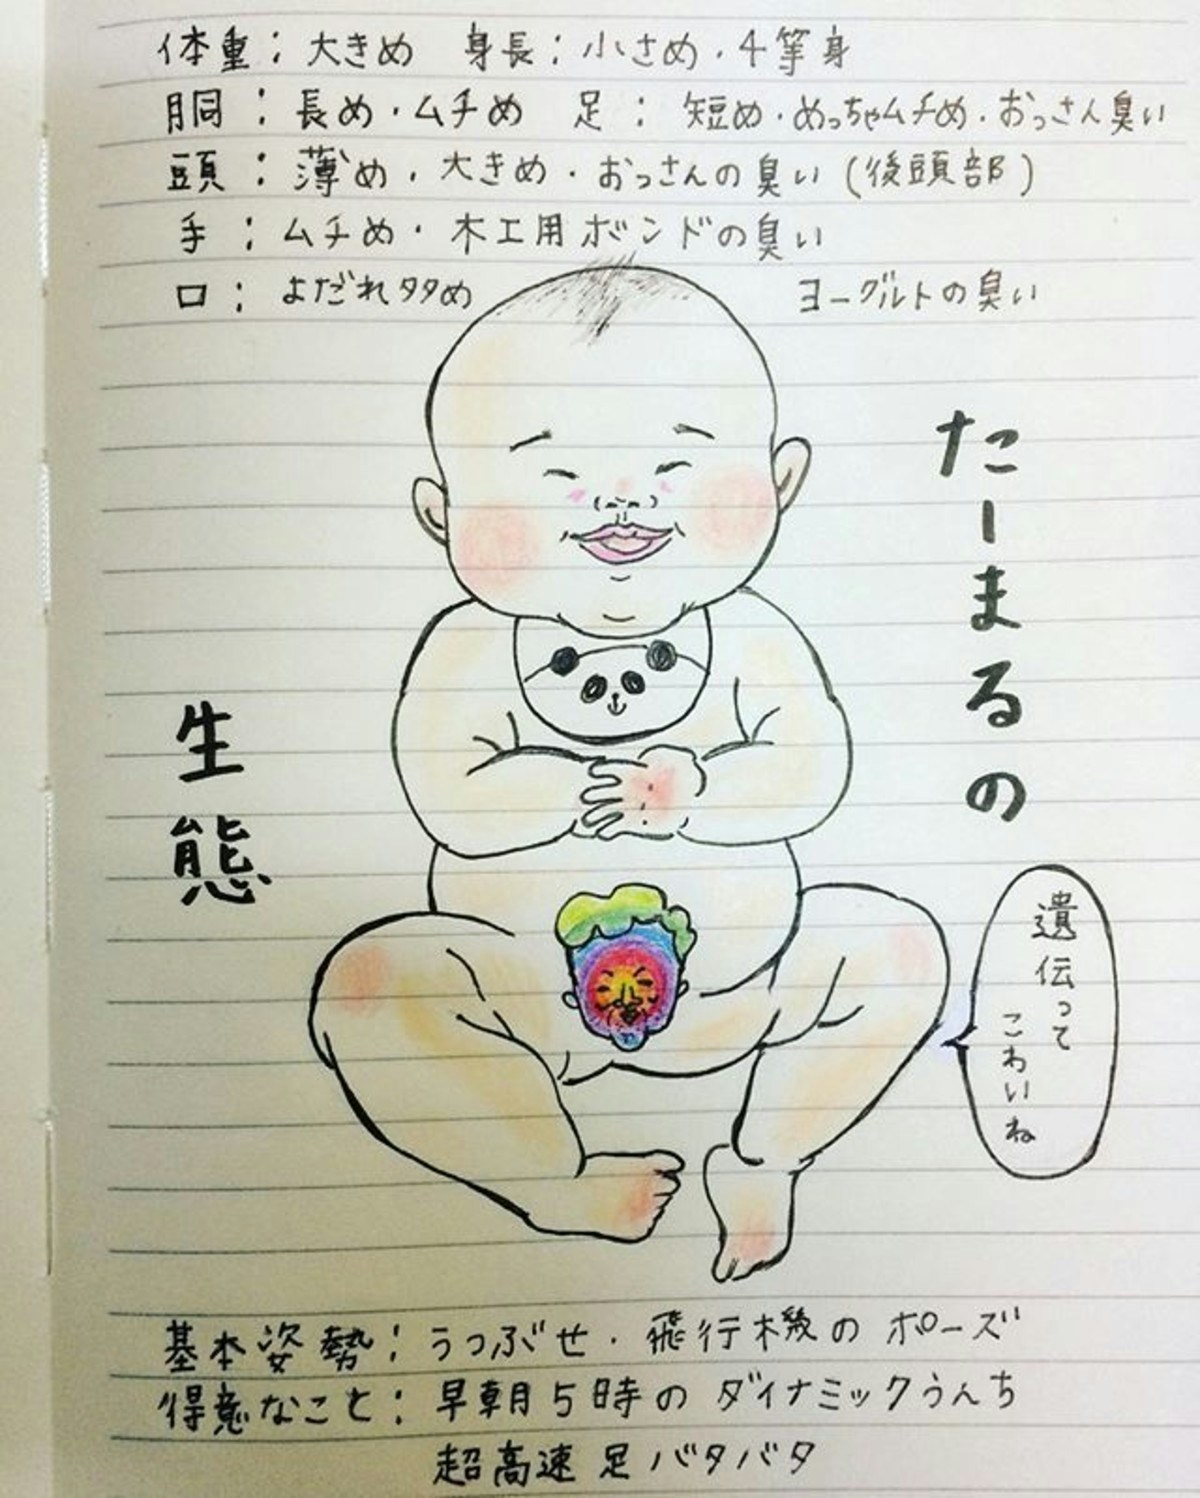 体重：大きめ　身長：小さめ・4等身
胴：長め・ムチめ　足：短め・めっちゃムチめ・おっさん臭い
頭：薄め・大きめ・おっさんの臭い(後頭部)
手：ムチめ・木工用ボンドの臭い
口：よだれ多め　ヨーグルトの臭い
たーまるの
生態
遺伝って
こわいね
基本姿勢：うつぶせ・飛行機のポーズ
得意なこと：早朝5時のダイナミックうんち
超高速足バタバタ